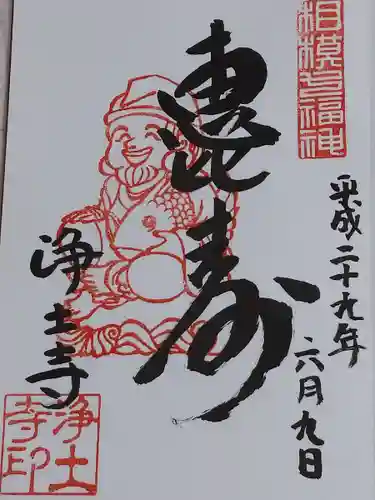 相模七福神
平成二十九年
六月九日
恵比寿
浄土寺
浄土寺印